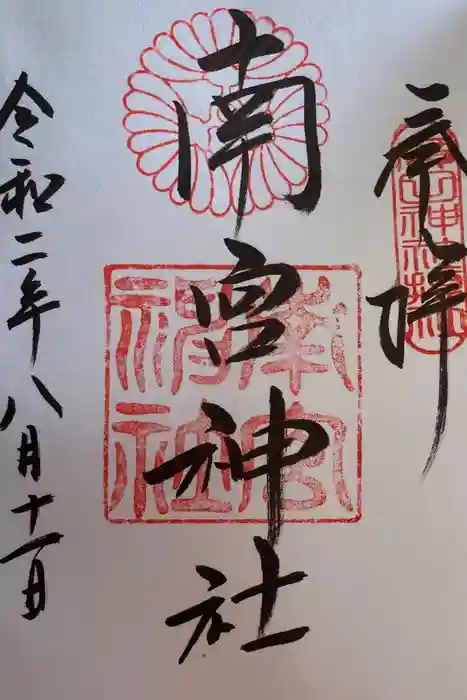 奉拝
南宮神社
南宮神社
令和二年八月十一日